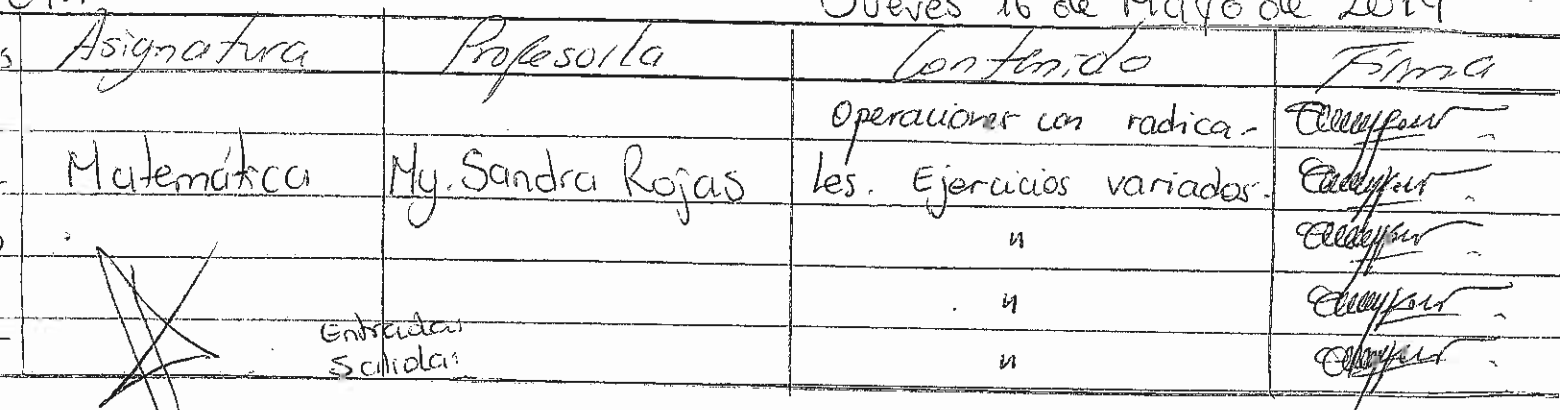 Jueves 16 de Mayo de 2019
Asignatura Profesor/a Contenido Firma
Operaciones con radica-
Matemática My. Sandra Rojas les. Ejercicios variados.
"
"
Entrada:
Salida: "